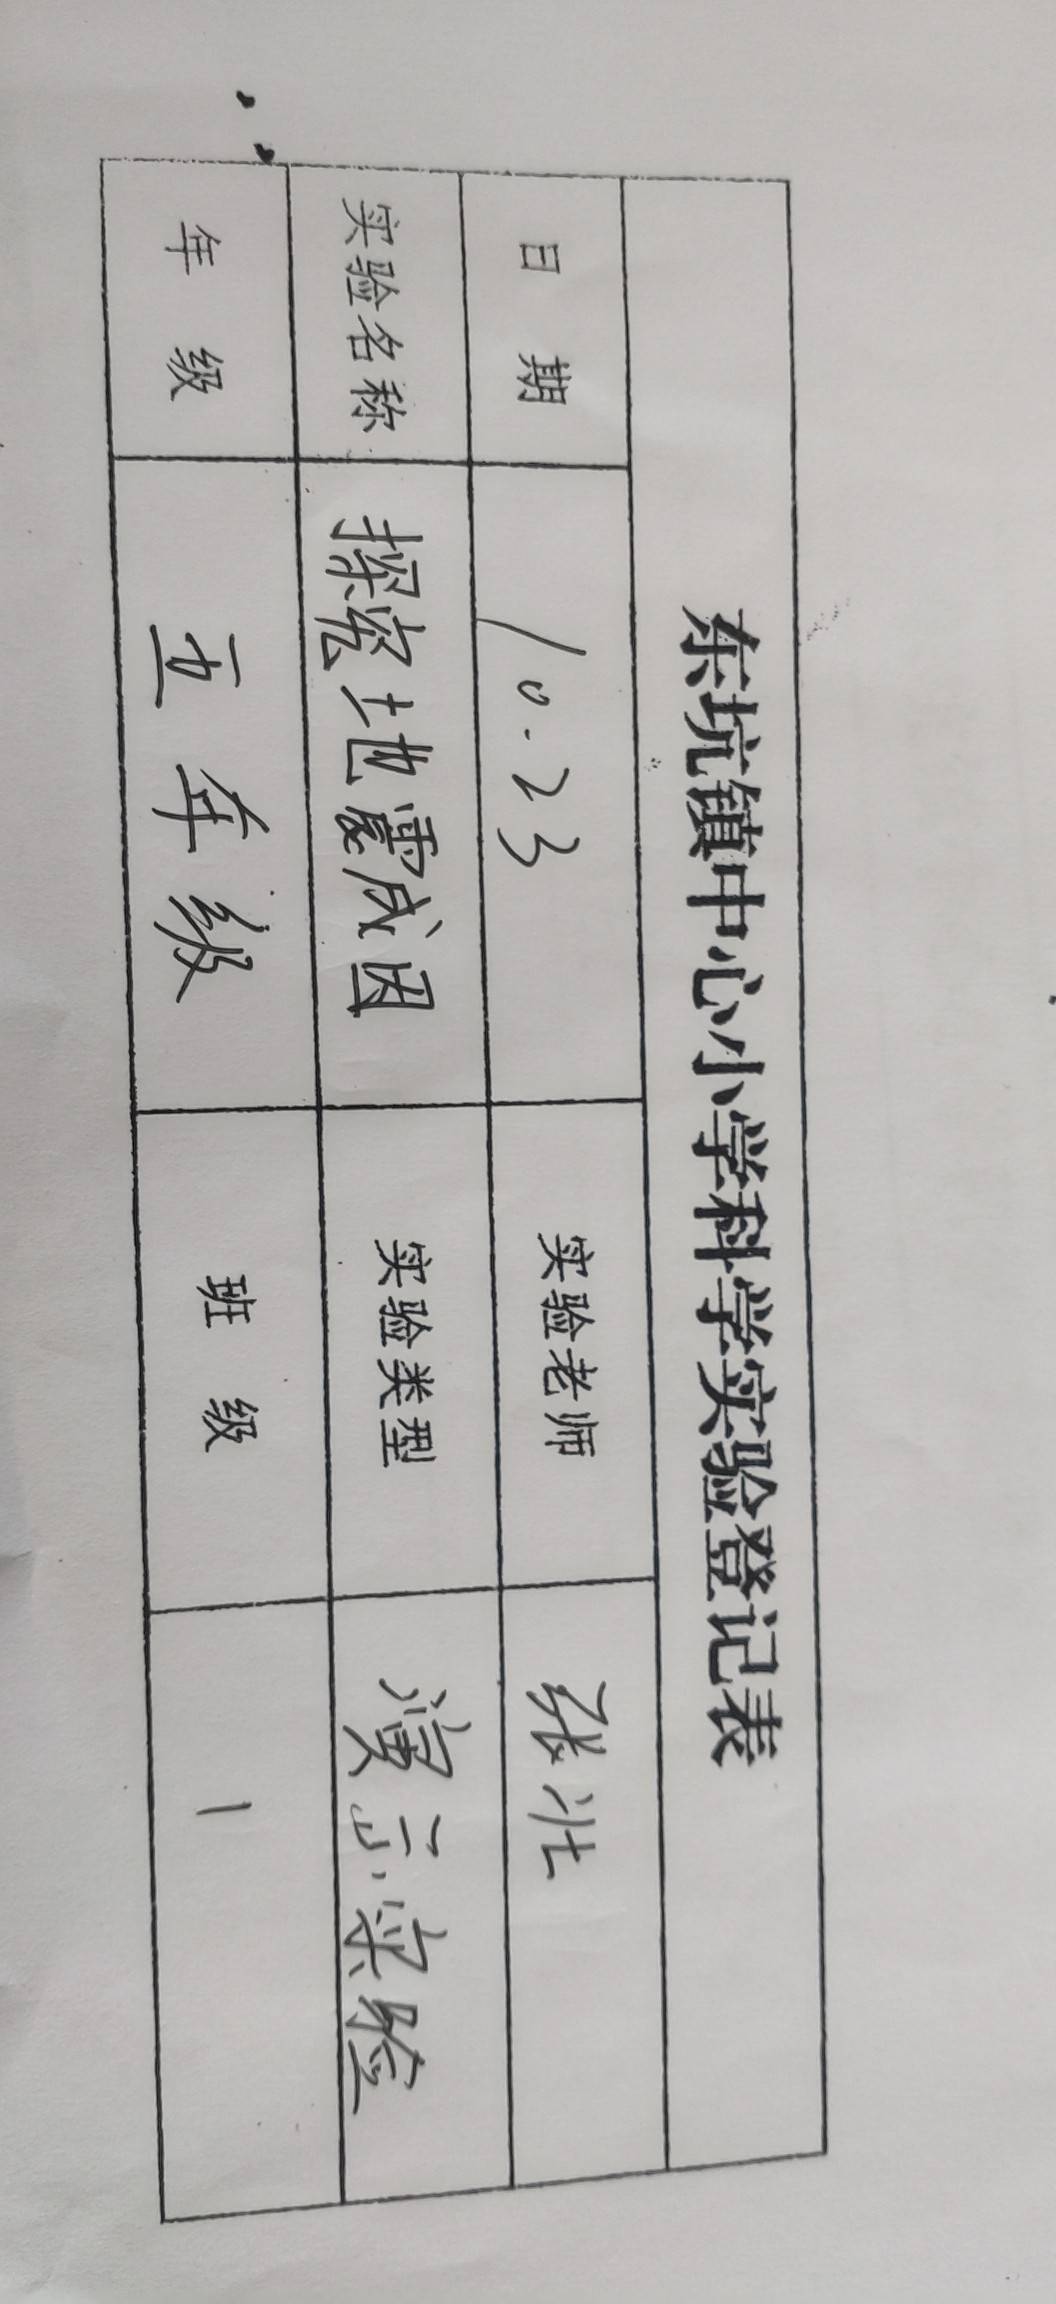 东坑镇中心小学科学实验登记表
日 期 10.23 实验老师 张壮
实验名称 探究地震成因 实验类型 演示实验
年 级 五年级 班 级 1